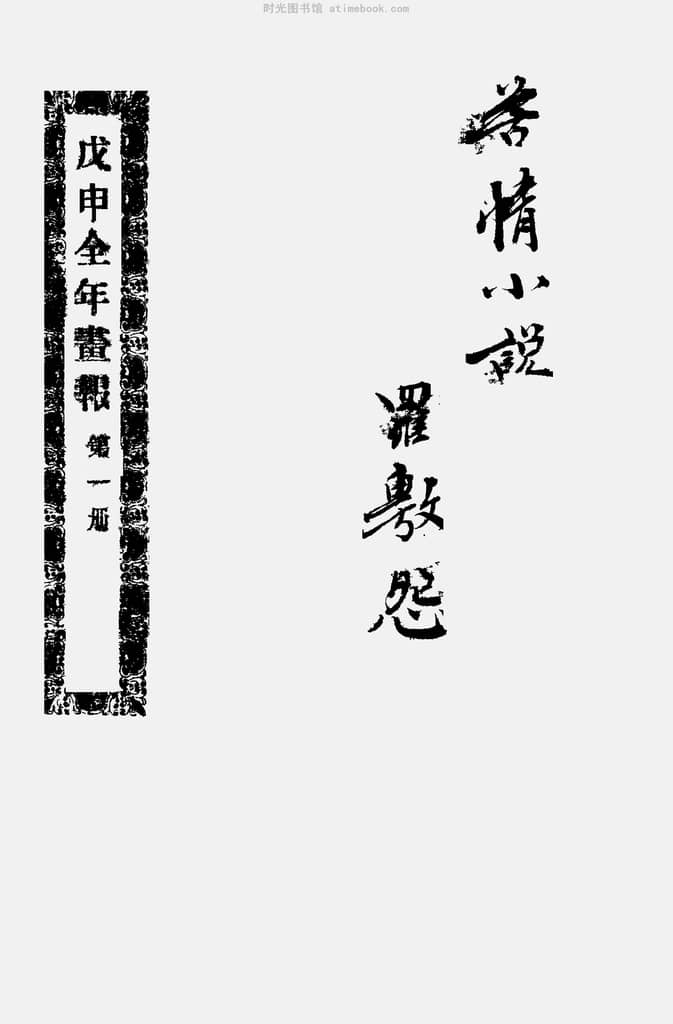 时光图书馆 atimebook.com
苦情小說
羅敷怨
戊申全年畫報 第一册